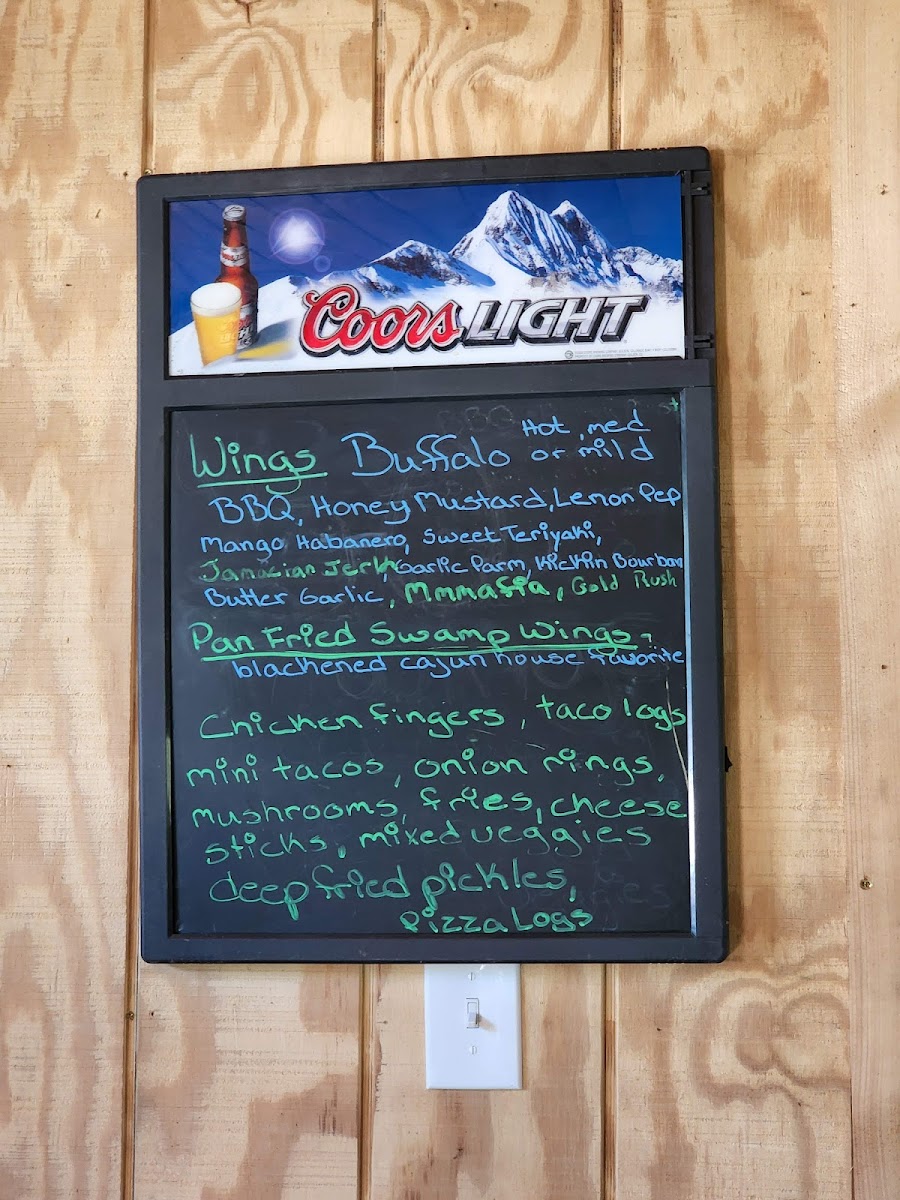 Coors LIGHT
Wings Buffalo Hot, med
or mild
BBQ, Honey Mustard, Lemon Pep
Mango Habanero, Sweet Teriyaki,
Jamacian Jerk, Garlic Parm, Kickin Bourbon
Butter Garlic, Mmmafia, Gold Rush
Pan Fried Swamp Wings -
blackened cajun house favorite
Chicken fingers, taco logs
mini tacos, onion rings,
mushrooms, fries, cheese
sticks, mixed veggies
deep fried pickles,
Pizza Logs